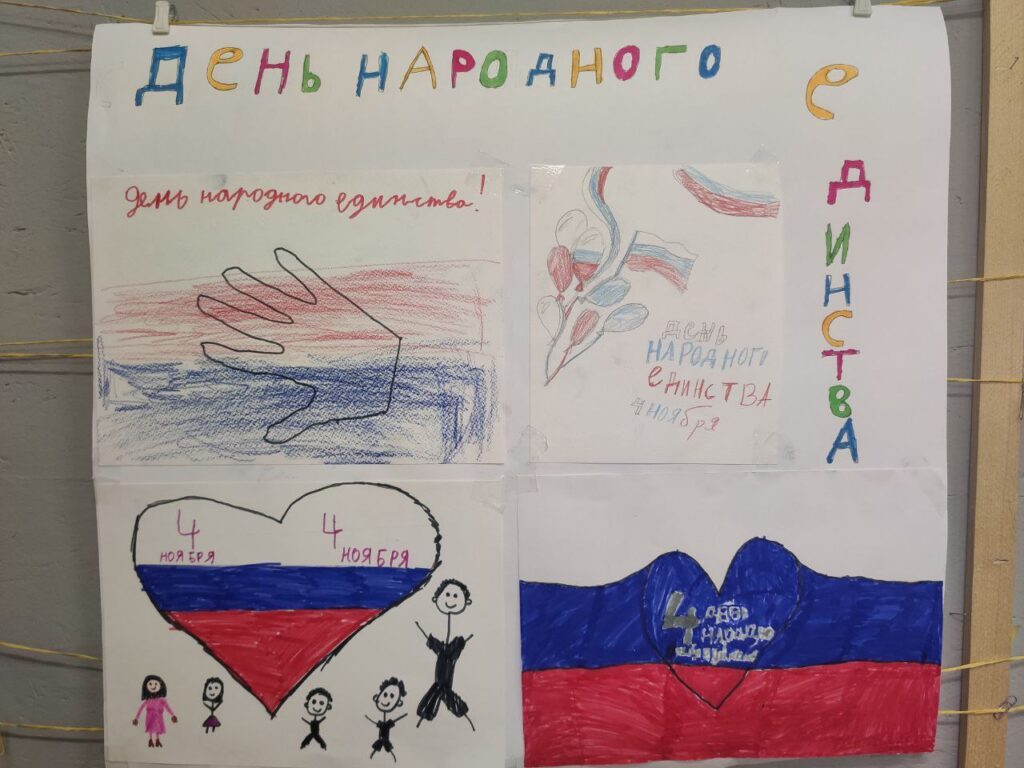 День народного
единства
День народного единства!
День
народного
единства
4 ноября
4
ноября
4
ноября
4 день
народно